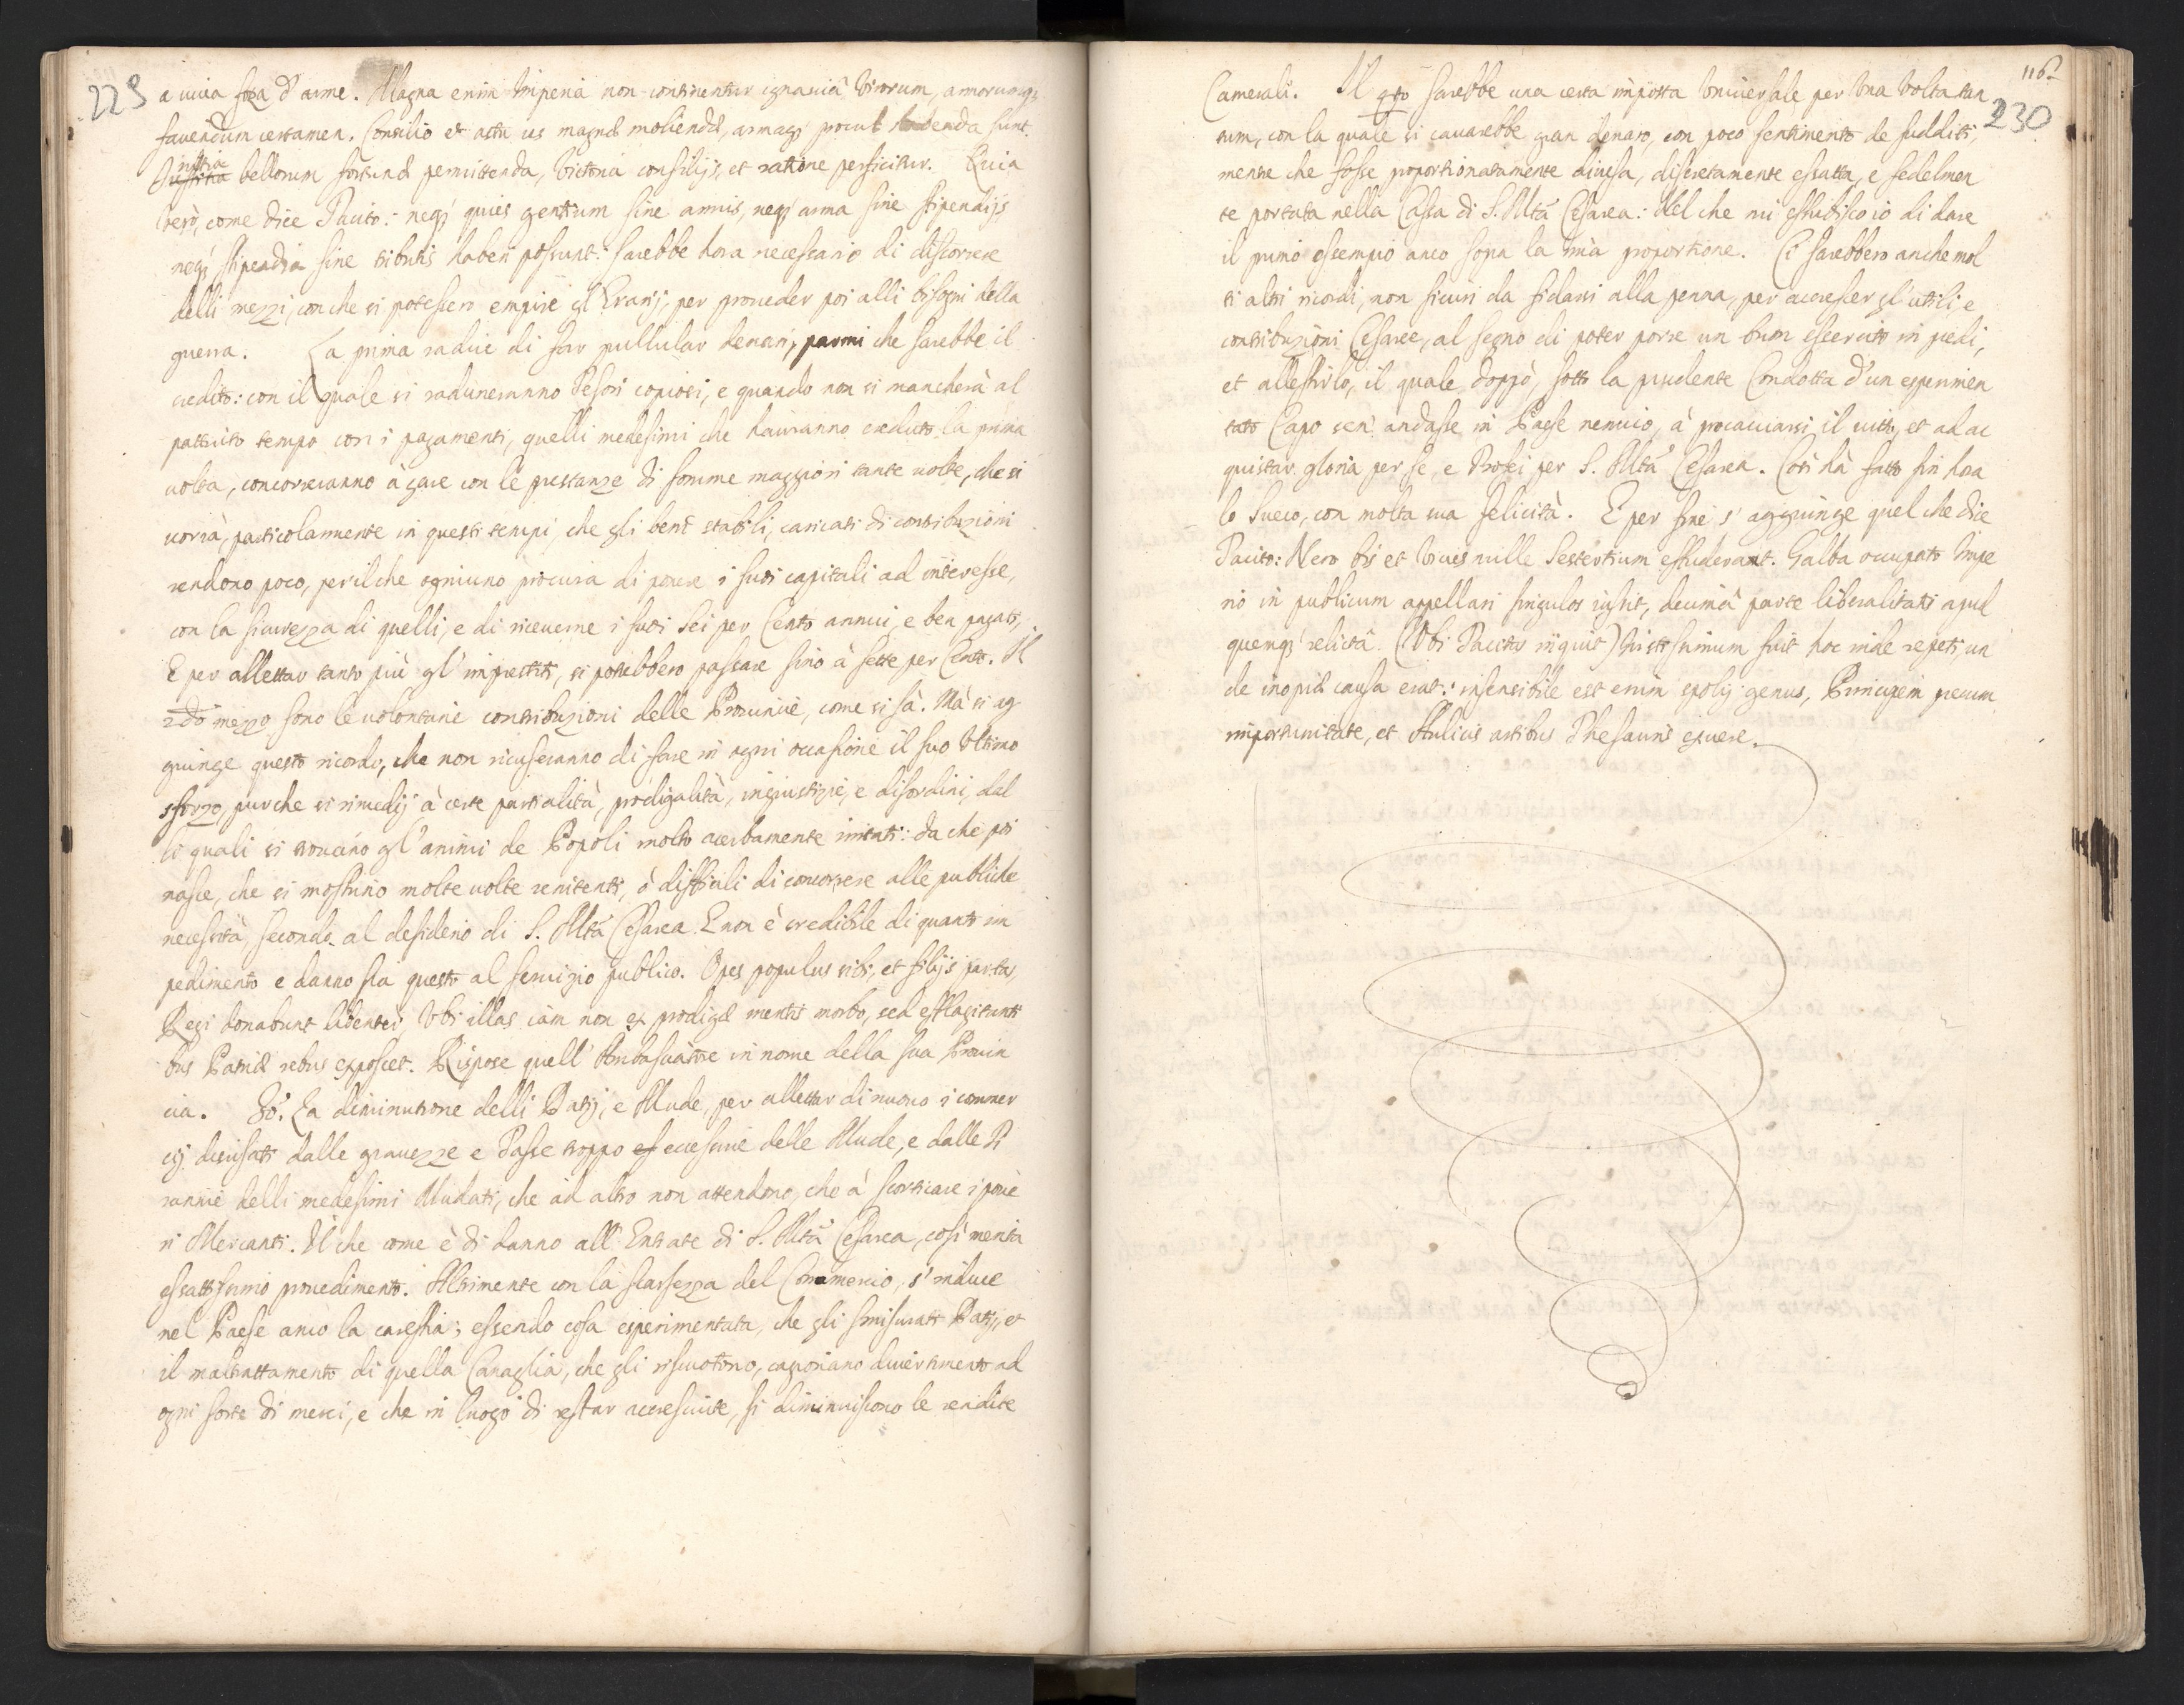 229
a viva fza d'arme. Magna enim Imperia non continentur ignaviâ Virorum, armorumq;
favendum certamen. Consilio et astu res magnæ moliendæ, armaq; procul habenda sunt.
Initia bellorum fortunæ permittenda, Victoria consilijs, et ratione perficitur. Quia
verò, come dice Tacito: neq; quies gentium sine armis, neq; arma sine stipendijs
neq; stipendia sine tributis haberi possunt: sarebbe hora necessario di discorrere
delli mezzi, con che si potessero empire gl'Erarij, per proveder poi alli bisogni della
guerra. La prima radice di far pullular denari, parmi che sarebbe il
credito: con il quale si raduneranno Tesori copiosi, e quando non si mancherà al
pattuito tempo con i pagamenti, quelli medesimi che hauranno creduto la prima
volta, concorreranno à gare con le prestanze di somme maggiori tante volte, che si
vorrà, particolarmente in questi tempi, che gli beni stabili, caricati di contribuzioni
rendono poco, perilche ogniuno procura di porre i suoi capitali ad interesse,
con la sicurezza di quelli, e di riceverne i suoi sei per Cento annui, e ben pagati,
E per allettar tanto più gl'imprestiti, si potrebbero passare sino à sette per Cento. Il
2do mezzo sono le volontarie contribuzioni delle Provincie, come si sà. Mà si ag
giunge questo ricordo, che non ricuseranno di fare in ogni occasione il suo Ultimo
sforzo, pur che si rimedij à certe partialità, prodigalità, ingiustizie, e disordini, dal
li quali si trovano gl'animi de Popoli molto acerbamente irritati: da che poi
nasce, che si mostrino molte volte renitenti, ò difficili di concorrere alle publiche
necessità, secondo al desiderio di S. Mtà Cesarea. E non è credibile di quanto im
pedimento e danno sia questo al servizio publico. Opes populus sibi, et filijs partas,
Regi donabunt libenter, Ubi illas iam non ex prodigæ mentis morbo, sed efflagitanti
bus Patriæ rebus exposcet. Rispose quell'Ambasciatore in nome della sua Provin
cia. 3o. La diminutione delli Datij, e Mude, per allettar di nuovo i commer
cij disvisati dalle gravezze e Tasse troppo ecf eccessive delle Mude, e dalle Ti
rannie delli medesimi Mudari, che ad altro non attendono, che à scorticare i pove
ri Mercanti. Il che come è di danno all'Entrate di S. Mtà Cesarea, così merita
esattissimo provedimento. Altrimente con la scarsezza del Commercio, s'induce
nel Paese anco la carestia; essendo cosa esperimentata, che gli smisurati Datij, et
il maltrattamento di quella Canaglia, che gli riscuotono, cagionano divertimento ad
ogni sorte di merci, e che in luogo di restar accresciute, si diminuiscono le rendite
116
230
Camerali. Il qto sarebbe una certa imposta Universale per Una Volta tan
tum, con la quale si cavarebbe gran denaro, con poco sentimento de sudditi,
mente che fosse proportionatamente divisa, discretamente essatta, e fedelmen
te portata nella Cassa di S. Mtà Cesarea: Nel che mi essibisco io di dare
il primo essempio anco sopra la mia proportione. Ci sarebbero anche mol
ti altri ricordi, non sicuri da fidarsi alla penna, per accrescer gl'utili, e
contribuzioni Cesaree, al segno di poter porre un buon essercito in piedi,
et allestirlo, il quale doppò, sotto la prudente Condotta d'un esperimen
tato Capo sen'andasse in Paese nemico, à procacciarsi il vitto, et ad ac
quistar gloria per se, e Trofei per S. Mtà Cesarea. Così hà fatto fin hora
lo Sueco, con molta sua felicità. E per fine s'aggiunge quel che dice
Tacito: Nero bis et Vicies mille Sestertium effuderant. Galba occupato Impe
rio in publicum appellari singulos iussit, decimâ parte liberalitatis apud
quemq; relictâ. (Ubi Tacitus inquit) Iustissimum fuit hoc inde repeti, un
de inopiæ causa erat: insensibile est enim spolij genus, Principem precum
importunitate, et Aulicis artibus Thesauris exuere.